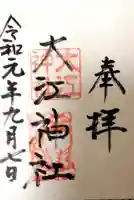 奉拝
大江神社
令和元年九月七日